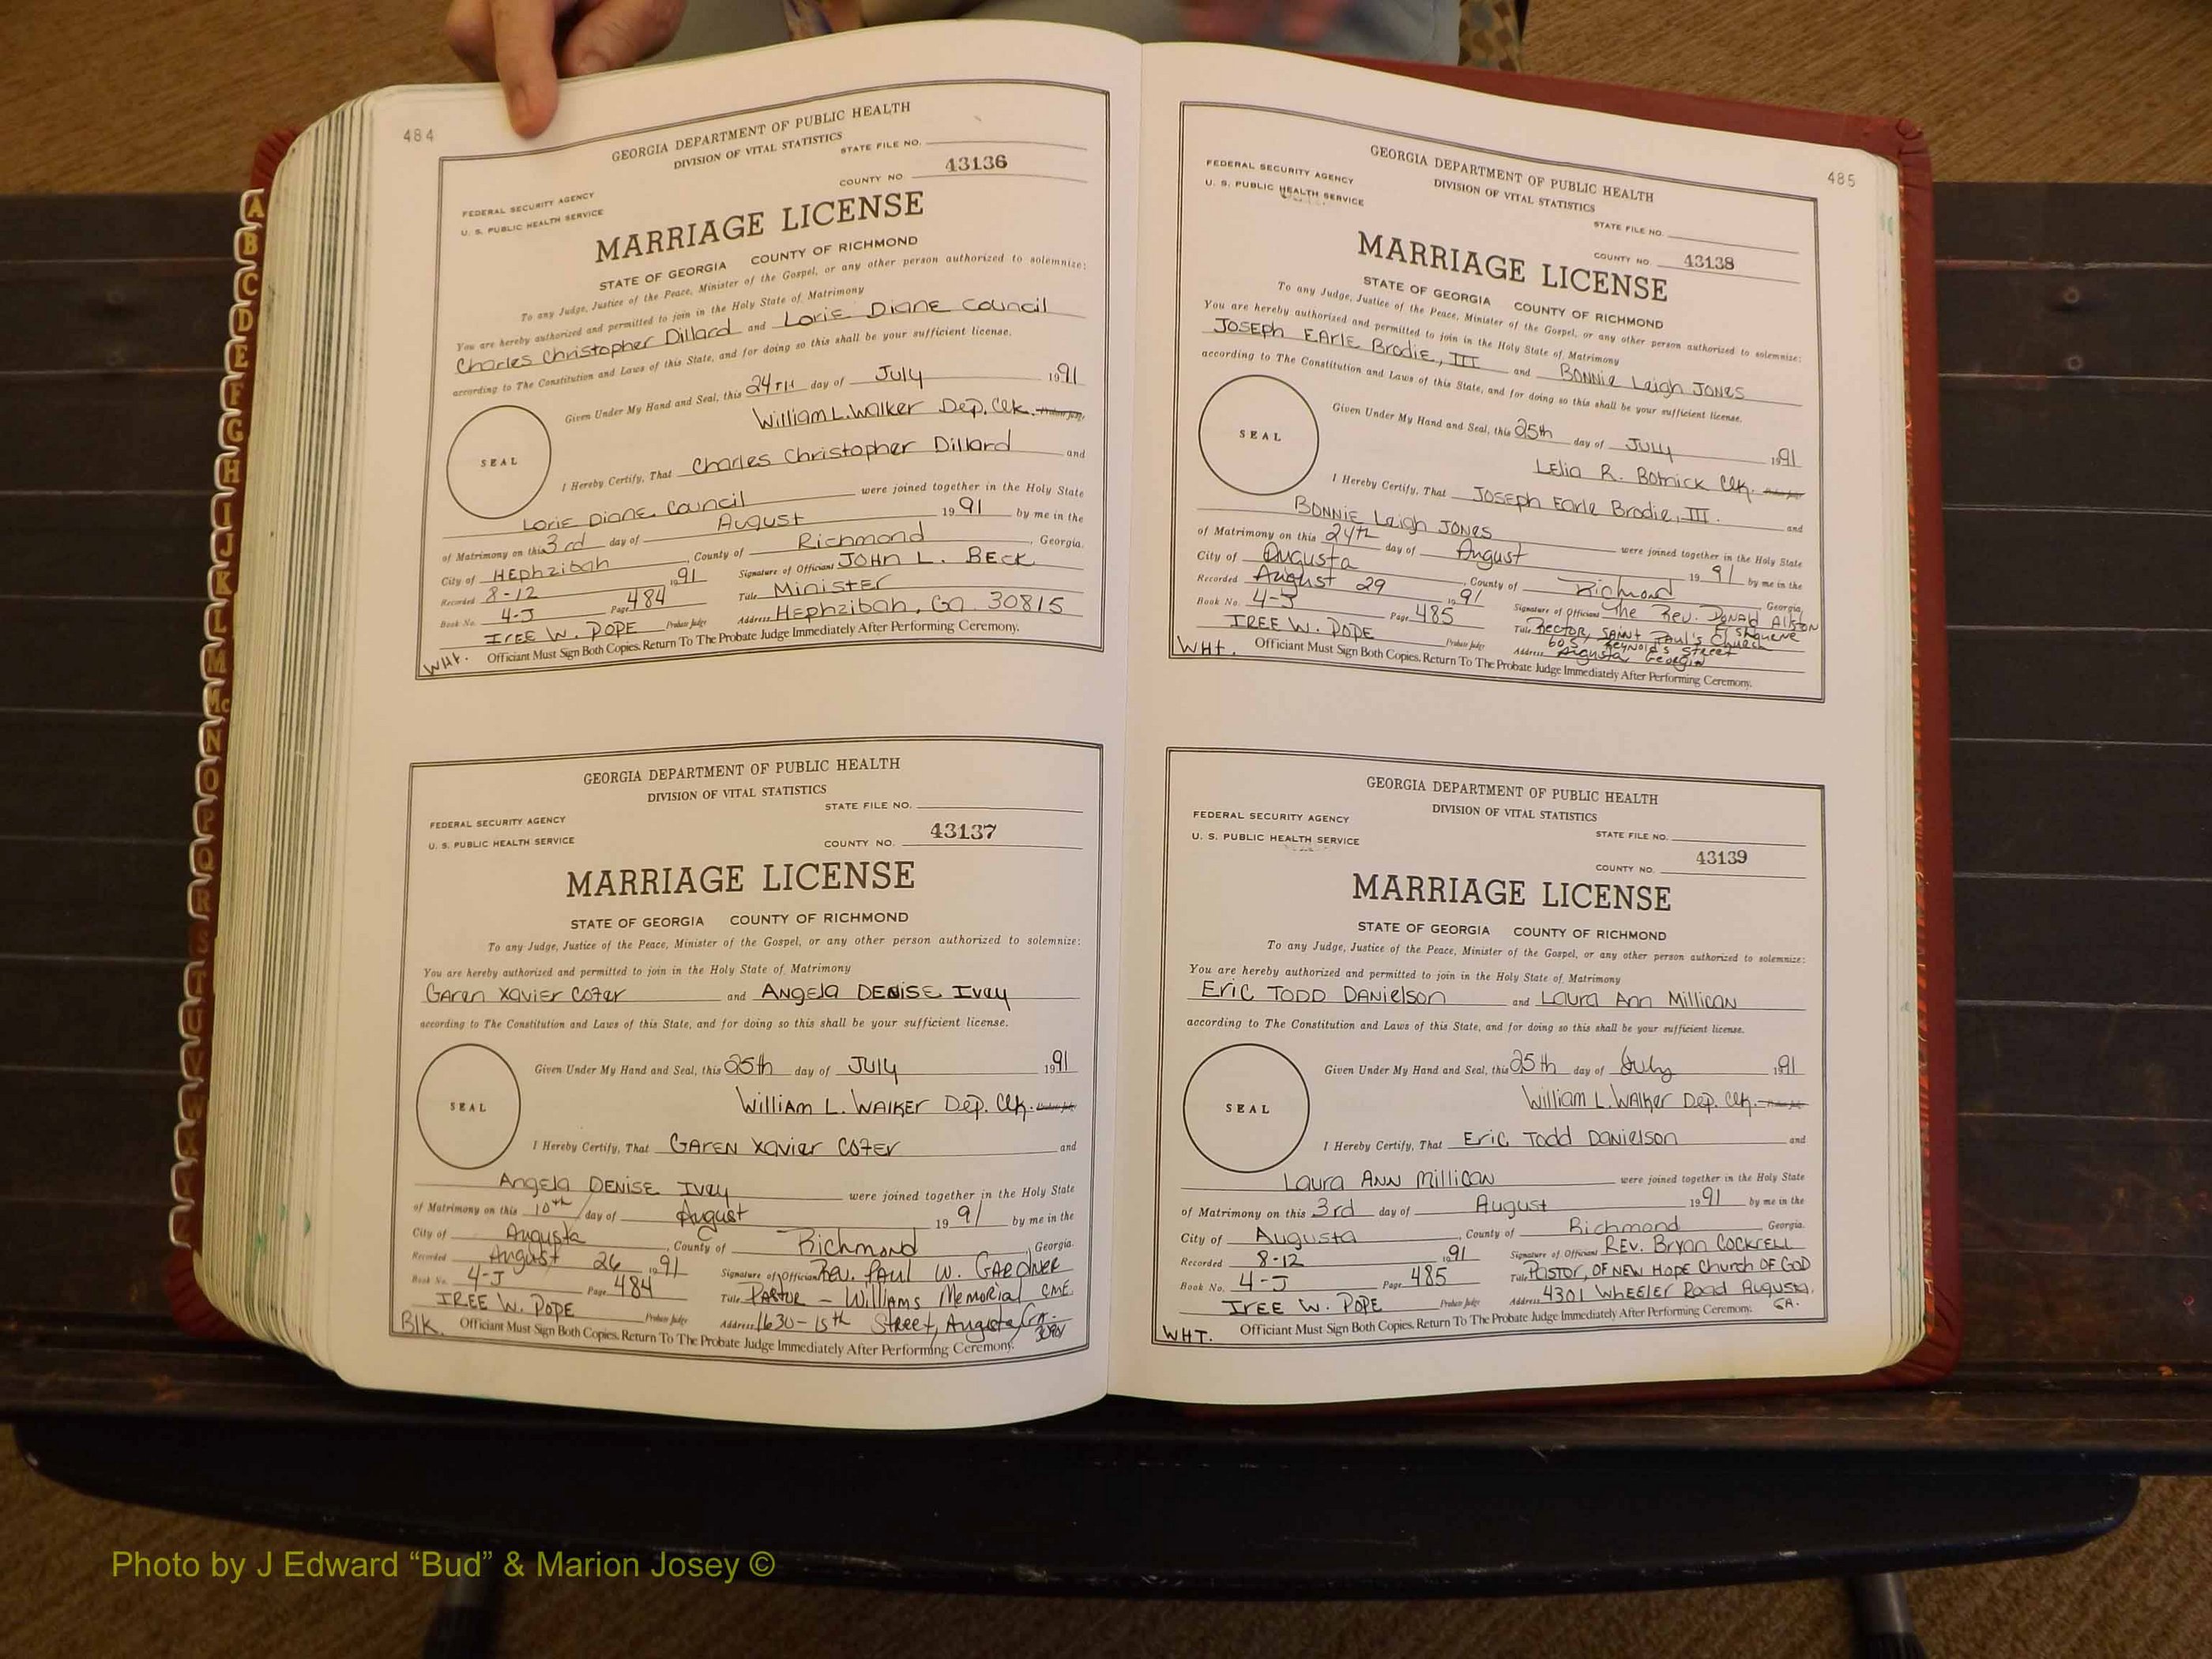 484
GEORGIA DEPARTMENT OF PUBLIC HEALTH
DIVISION OF VITAL STATISTICS
STATE FILE NO.
FEDERAL SECURITY AGENCY
U. S. PUBLIC HEALTH SERVICE
COUNTY NO. 43136
MARRIAGE LICENSE
STATE OF GEORGIA COUNTY OF RICHMOND
To any Judge, Justice of the Peace, Minister of the Gospel, or any other person authorized to solemnize:
You are hereby authorized and permitted to join in the Holy State of Matrimony
Charles Christopher Dillard and Lorie Diane Council
according to The Constitution and Laws of this State, and for doing so this shall be your sufficient license.
Given Under My Hand and Seal, this 24TH day of July 1991
William L. Walker Dep. Clk. Probate Judge
SEAL
I Hereby Certify, That Charles Christopher Dillard and
Lorie Diane Council were joined together in the Holy State
of Matrimony on this 3rd day of August 1991 by me in the
City of Hephzibah, County of Richmond, Georgia.
Recorded 8-12 1991 Signature of Officiant JOHN L. BECK
Book No. 4-J Page 484 Title Minister
IREE W. POPE Probate Judge Address Hephzibah, Ga. 30815
WHt. Officiant Must Sign Both Copies. Return To The Probate Judge Immediately After Performing Ceremony.
GEORGIA DEPARTMENT OF PUBLIC HEALTH
DIVISION OF VITAL STATISTICS
STATE FILE NO.
FEDERAL SECURITY AGENCY
U. S. PUBLIC HEALTH SERVICE
COUNTY NO. 43137
MARRIAGE LICENSE
STATE OF GEORGIA COUNTY OF RICHMOND
To any Judge, Justice of the Peace, Minister of the Gospel, or any other person authorized to solemnize:
You are hereby authorized and permitted to join in the Holy State of Matrimony
Garen Xavier Cozer and Angela DENISE Ivey
according to The Constitution and Laws of this State, and for doing so this shall be your sufficient license.
Given Under My Hand and Seal, this 25th day of July 1991
William L. Walker Dep. Clk. Probate Judge
SEAL
I Hereby Certify, That GAREN Xavier Cozer and
Angela DENISE Ivey were joined together in the Holy State
of Matrimony on this 10th day of August 1991 by me in the
City of Augusta, County of Richmond, Georgia.
Recorded August 26 1991 Signature of Officiant Rev. PAUL W. GARDNER
Book No. 4-J Page 484 Title PASTOR - Williams Memorial CME
IREE W. POPE Probate Judge Address 1630-15th Street, Augusta, Ga. 30901
Blk. Officiant Must Sign Both Copies. Return To The Probate Judge Immediately After Performing Ceremony.
485
GEORGIA DEPARTMENT OF PUBLIC HEALTH
DIVISION OF VITAL STATISTICS
FEDERAL SECURITY AGENCY
U. S. PUBLIC HEALTH SERVICE
STATE FILE NO.
COUNTY NO. 43138
MARRIAGE LICENSE
STATE OF GEORGIA COUNTY OF RICHMOND
To any Judge, Justice of the Peace, Minister of the Gospel, or any other person authorized to solemnize:
You are hereby authorized and permitted to join in the Holy State of Matrimony
Joseph Earle Brodie, III and Bonnie Leigh JONES
according to The Constitution and Laws of this State, and for doing so this shall be your sufficient license.
Given Under My Hand and Seal, this 25th day of July 1991
Lelia R. Botnick Clk. Probate Judge
SEAL
I Hereby Certify, That Joseph Earle Brodie, III. and
BONNIE Leigh JONES were joined together in the Holy State
of Matrimony on this 24th day of August 1991 by me in the
City of Augusta, County of Richmond Georgia,
Recorded August 29 1991 Signature of Officiant The Rev. Donald Alston
Book No. 4-J Page 485 Title Rector, SAINT Paul's Church
605 Reynolds Street
IREE W. POPE Probate Judge Address Augusta Georgia
WHt. Officiant Must Sign Both Copies. Return To The Probate Judge Immediately After Performing Ceremony.
GEORGIA DEPARTMENT OF PUBLIC HEALTH
DIVISION OF VITAL STATISTICS
FEDERAL SECURITY AGENCY
U. S. PUBLIC HEALTH SERVICE
STATE FILE NO.
COUNTY NO. 43139
MARRIAGE LICENSE
STATE OF GEORGIA COUNTY OF RICHMOND
To any Judge, Justice of the Peace, Minister of the Gospel, or any other person authorized to solemnize:
You are hereby authorized and permitted to join in the Holy State of Matrimony
Eric TODD DANielson and Laura Ann Millican
according to The Constitution and Laws of this State, and for doing so this shall be your sufficient license.
Given Under My Hand and Seal, this 25th day of July 1991
William L. Walker Dep. Clk. Probate Judge
SEAL
I Hereby Certify, That Eric Todd Danielson and
Laura ANN Millican were joined together in the Holy State
of Matrimony on this 3rd day of August 1991 by me in the
City of Augusta, County of Richmond, Georgia.
Recorded 8-12 1991 Signature of Officiant REV. Bryan COCKRELL
Book No. 4-J Page 485 Title Pastor, OF NEW HOPE Church OF GOD
IREE W. POPE Probate Judge Address 4301 WHEELER Road Augusta, GA.
WHT. Officiant Must Sign Both Copies. Return To The Probate Judge Immediately After Performing Ceremony.
A
B
C
D
E
F
G
H
I
J
K
L
M
Mc
N
O
P
Q
R
S
T
U
V
W
Photo by J Edward “Bud” & Marion Josey ©